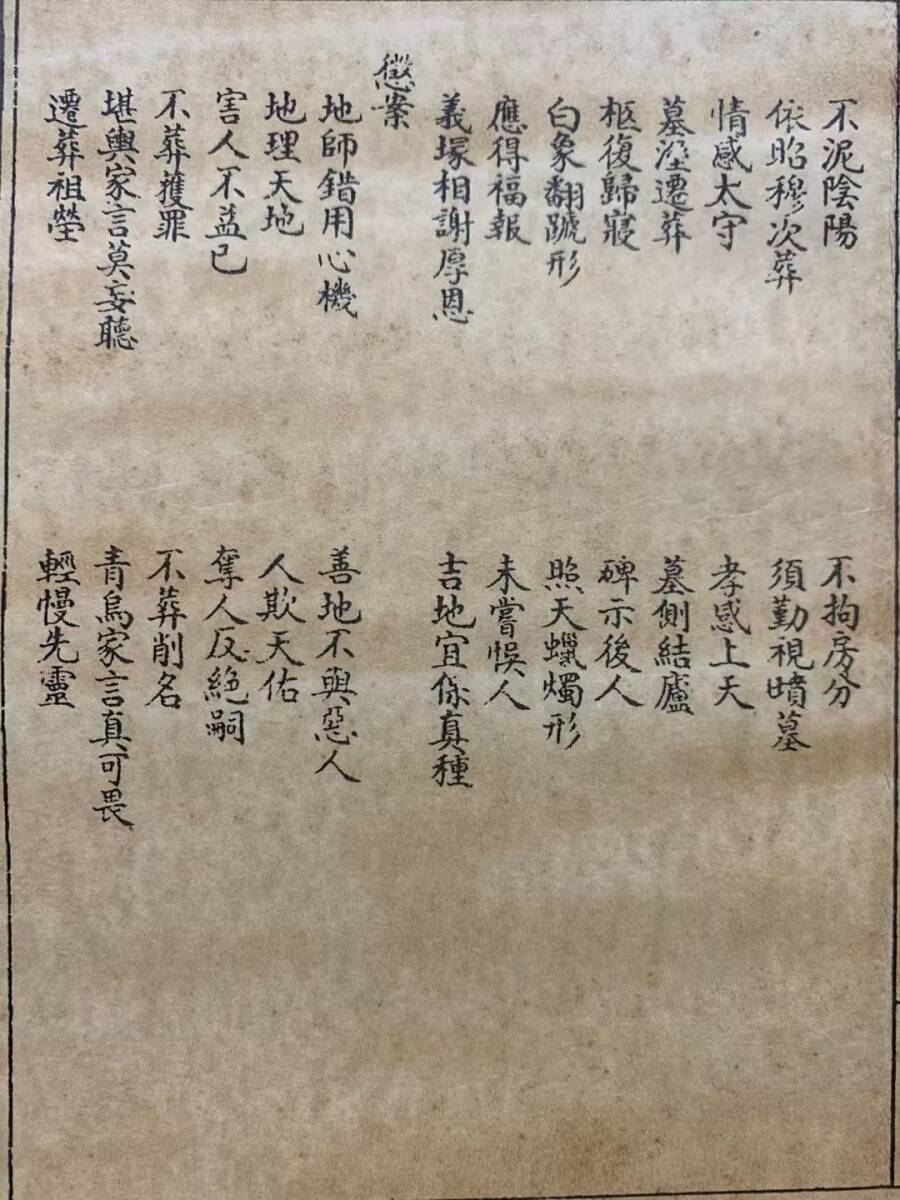 不泥陰陽 不拘房分
依昭穆次葬 須勤視墳墓
情感太守 孝感上天
墓溼遷葬 墓側結廬
柩復歸寢 碑示後人
白象翻蹏形 照天蠟燭形
應得福報 未嘗悞人
義塚相謝厚恩 吉地宜係真種
懲案
地師錯用心機 善地不與惡人
地理天地 人欺天佑
害人不益己 奪人反絕嗣
不葬獲罪 不葬削名
堪輿家言莫妄聽 青烏家言真可畏
遷葬祖塋 輕慢先靈